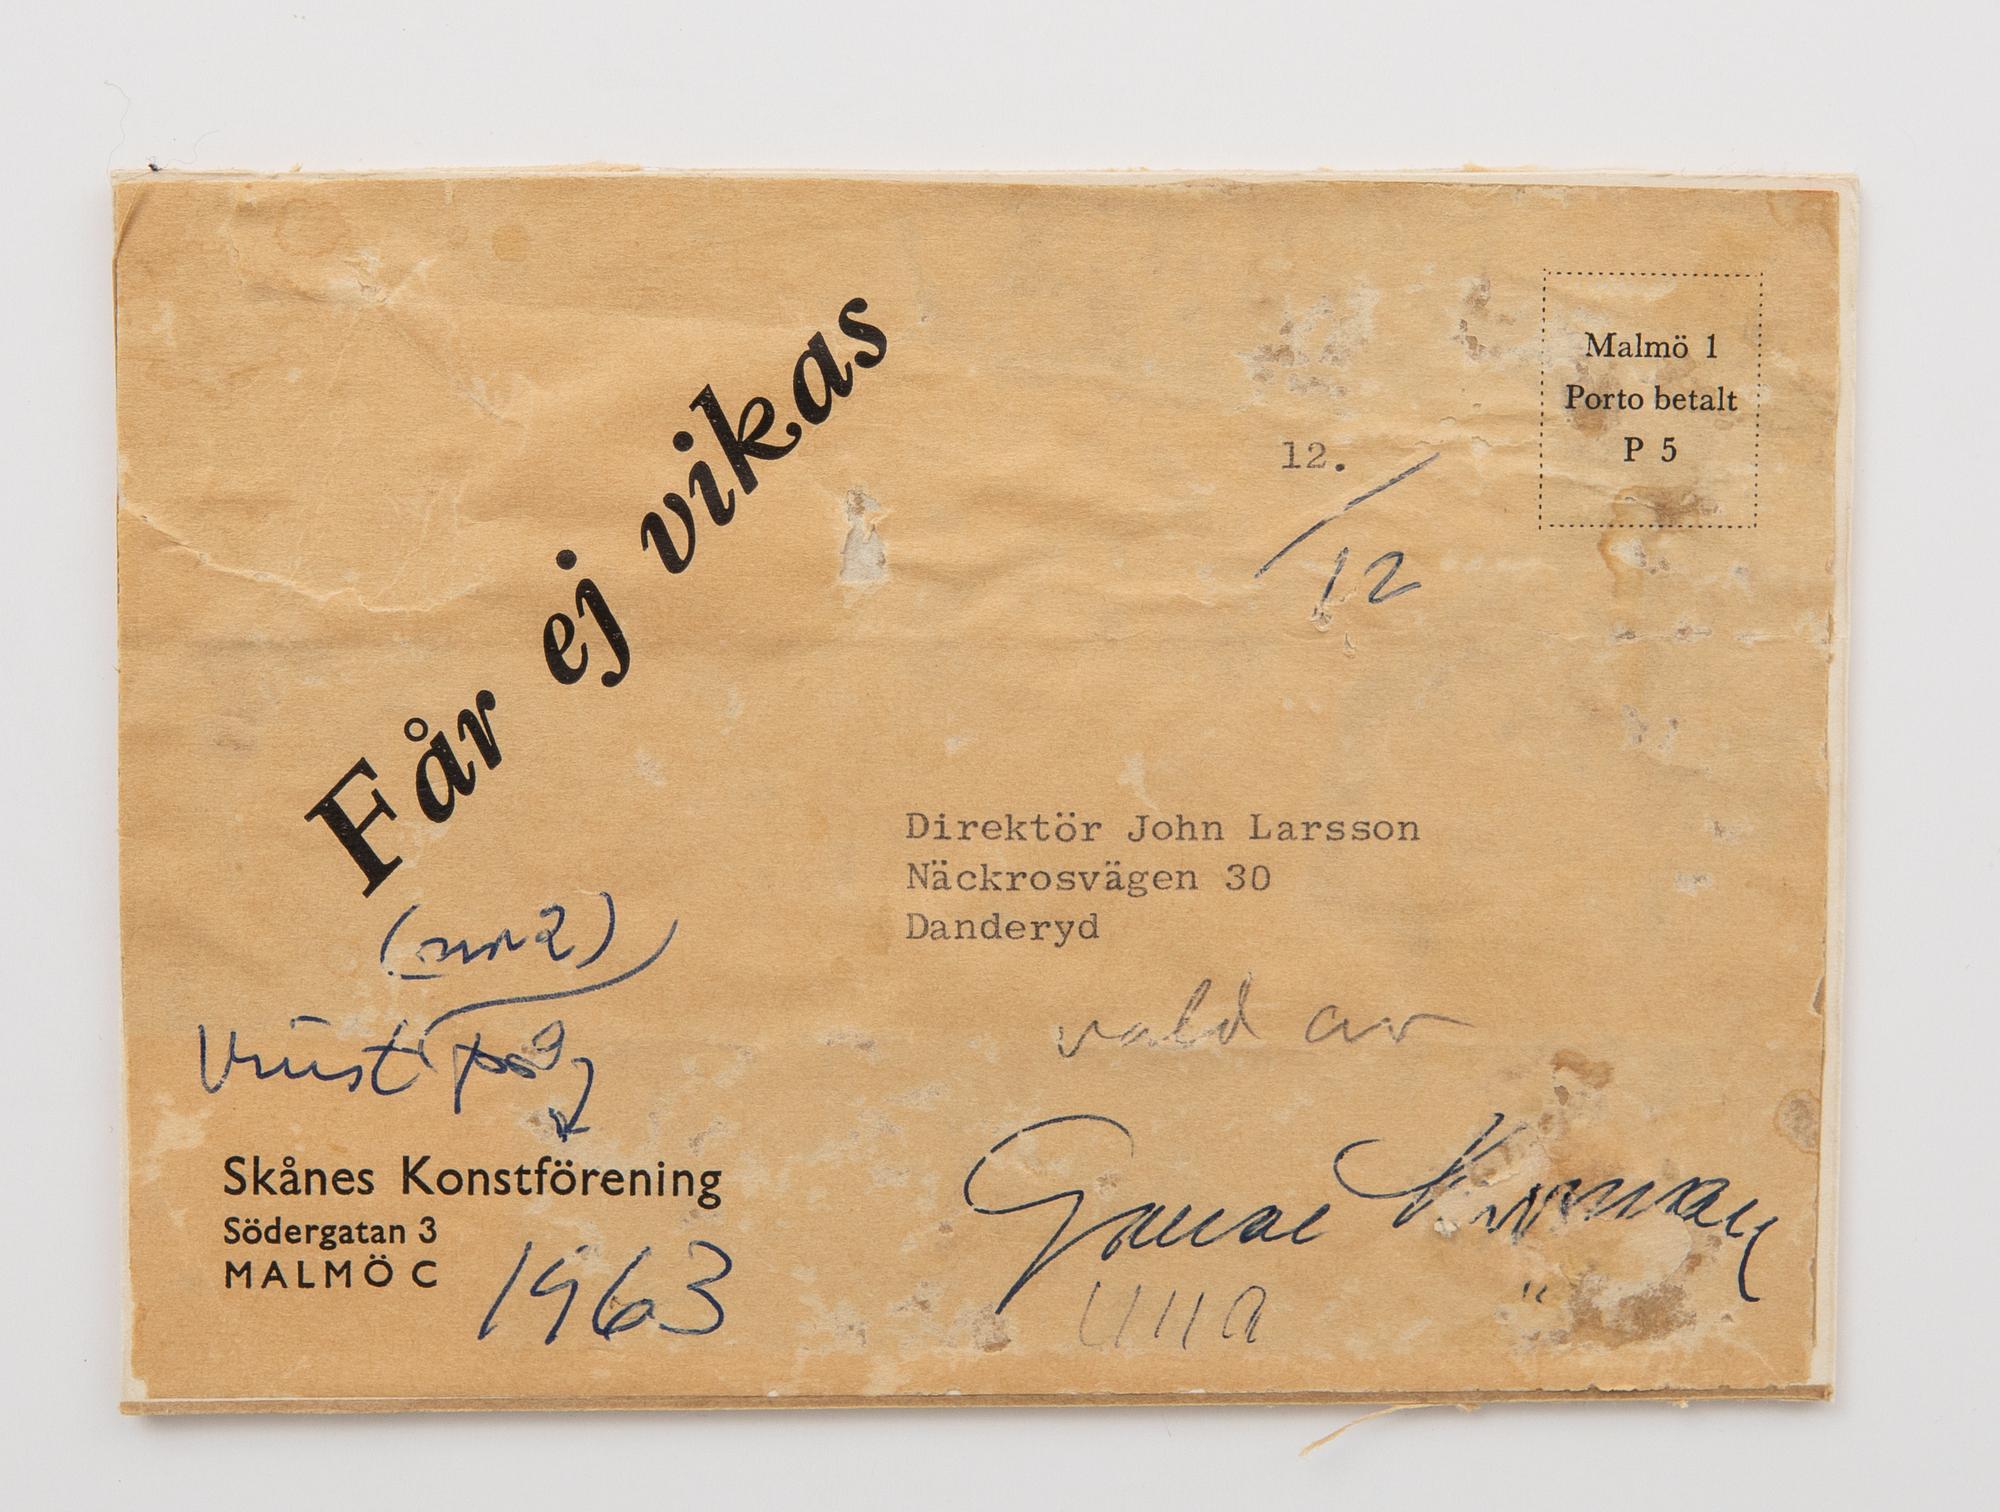 Får ej vikas
Malmö 1
Porto betalt
P 5
12.
/12
Direktör John Larsson
Näckrosvägen 30
Danderyd
(nr 2)
Vinst på
vald av
Skånes Konstförening
Södergatan 3
MALMÖ C
1963